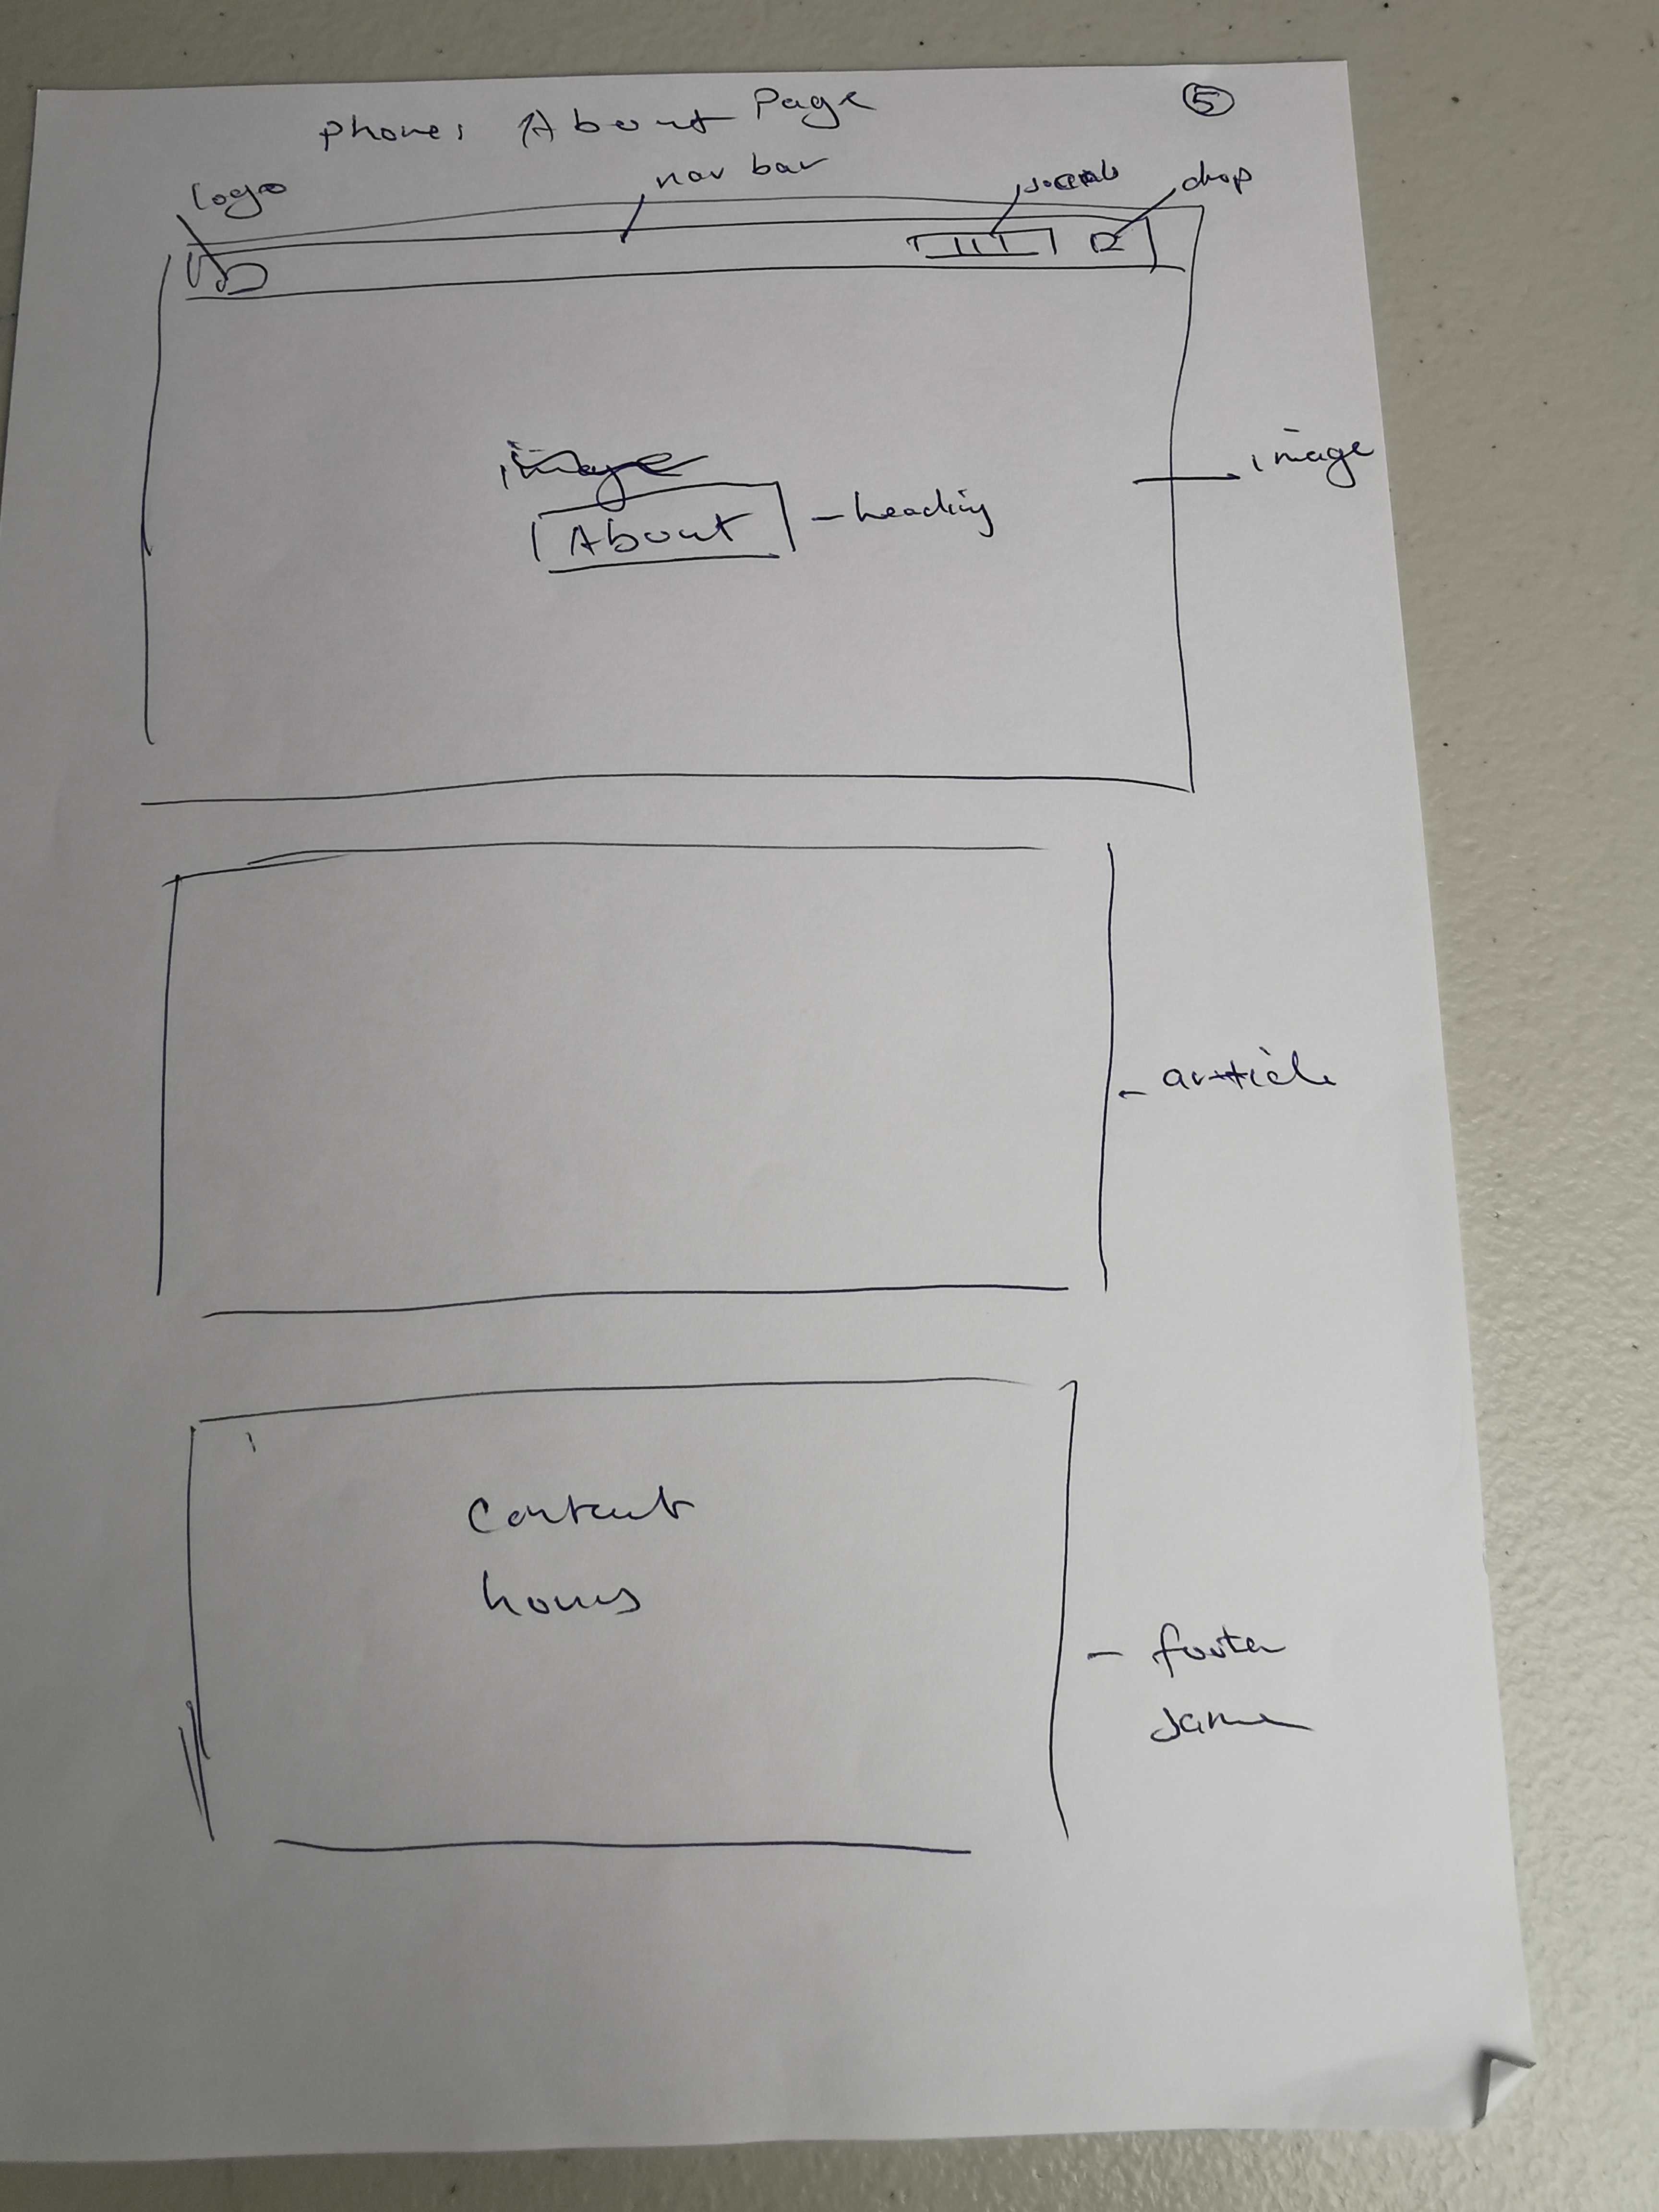 phone: About Page
5
logo
nav bar
socials
drop
image
image
About
heading
article
Contact
hours
footer
same